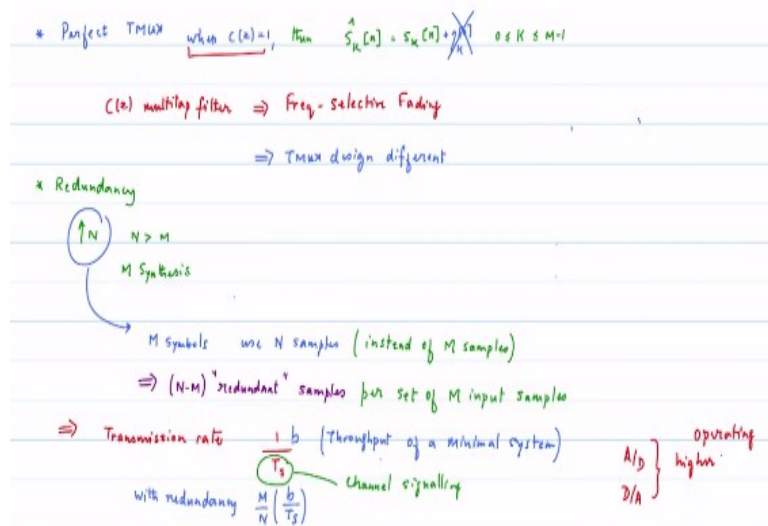 * Perfect TMUX when C(z)=1, then ŝ_k[n] = s_k[n] + η_k[n] 0 ≤ K ≤ M-1
C(z) multitap filter ⇒ Freq-selective Fading
⇒ TMUX design different
* Redundancy
↑N N > M
M Synthesis
M symbols use N samples (instead of M samples)
⇒ (N-M) "redundant" samples per set of M input samples
⇒ Transmission rate 1/T_s b (Throughput of a minimal system)
channel signalling
A/D
D/A
operating
higher
with redundancy M/N (b/T_s)